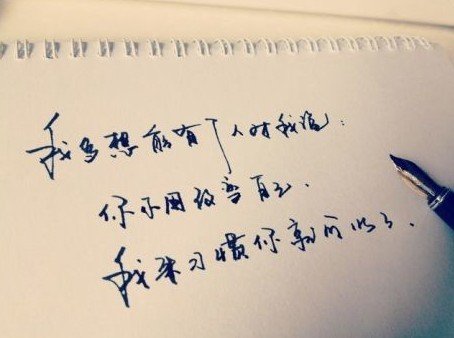 我多想能有个人对我说：
你不用改变自己.
我来习惯你就可以了.